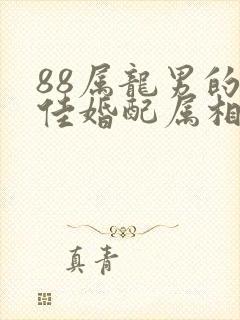 88属龍男的
佳婚配属相
真青